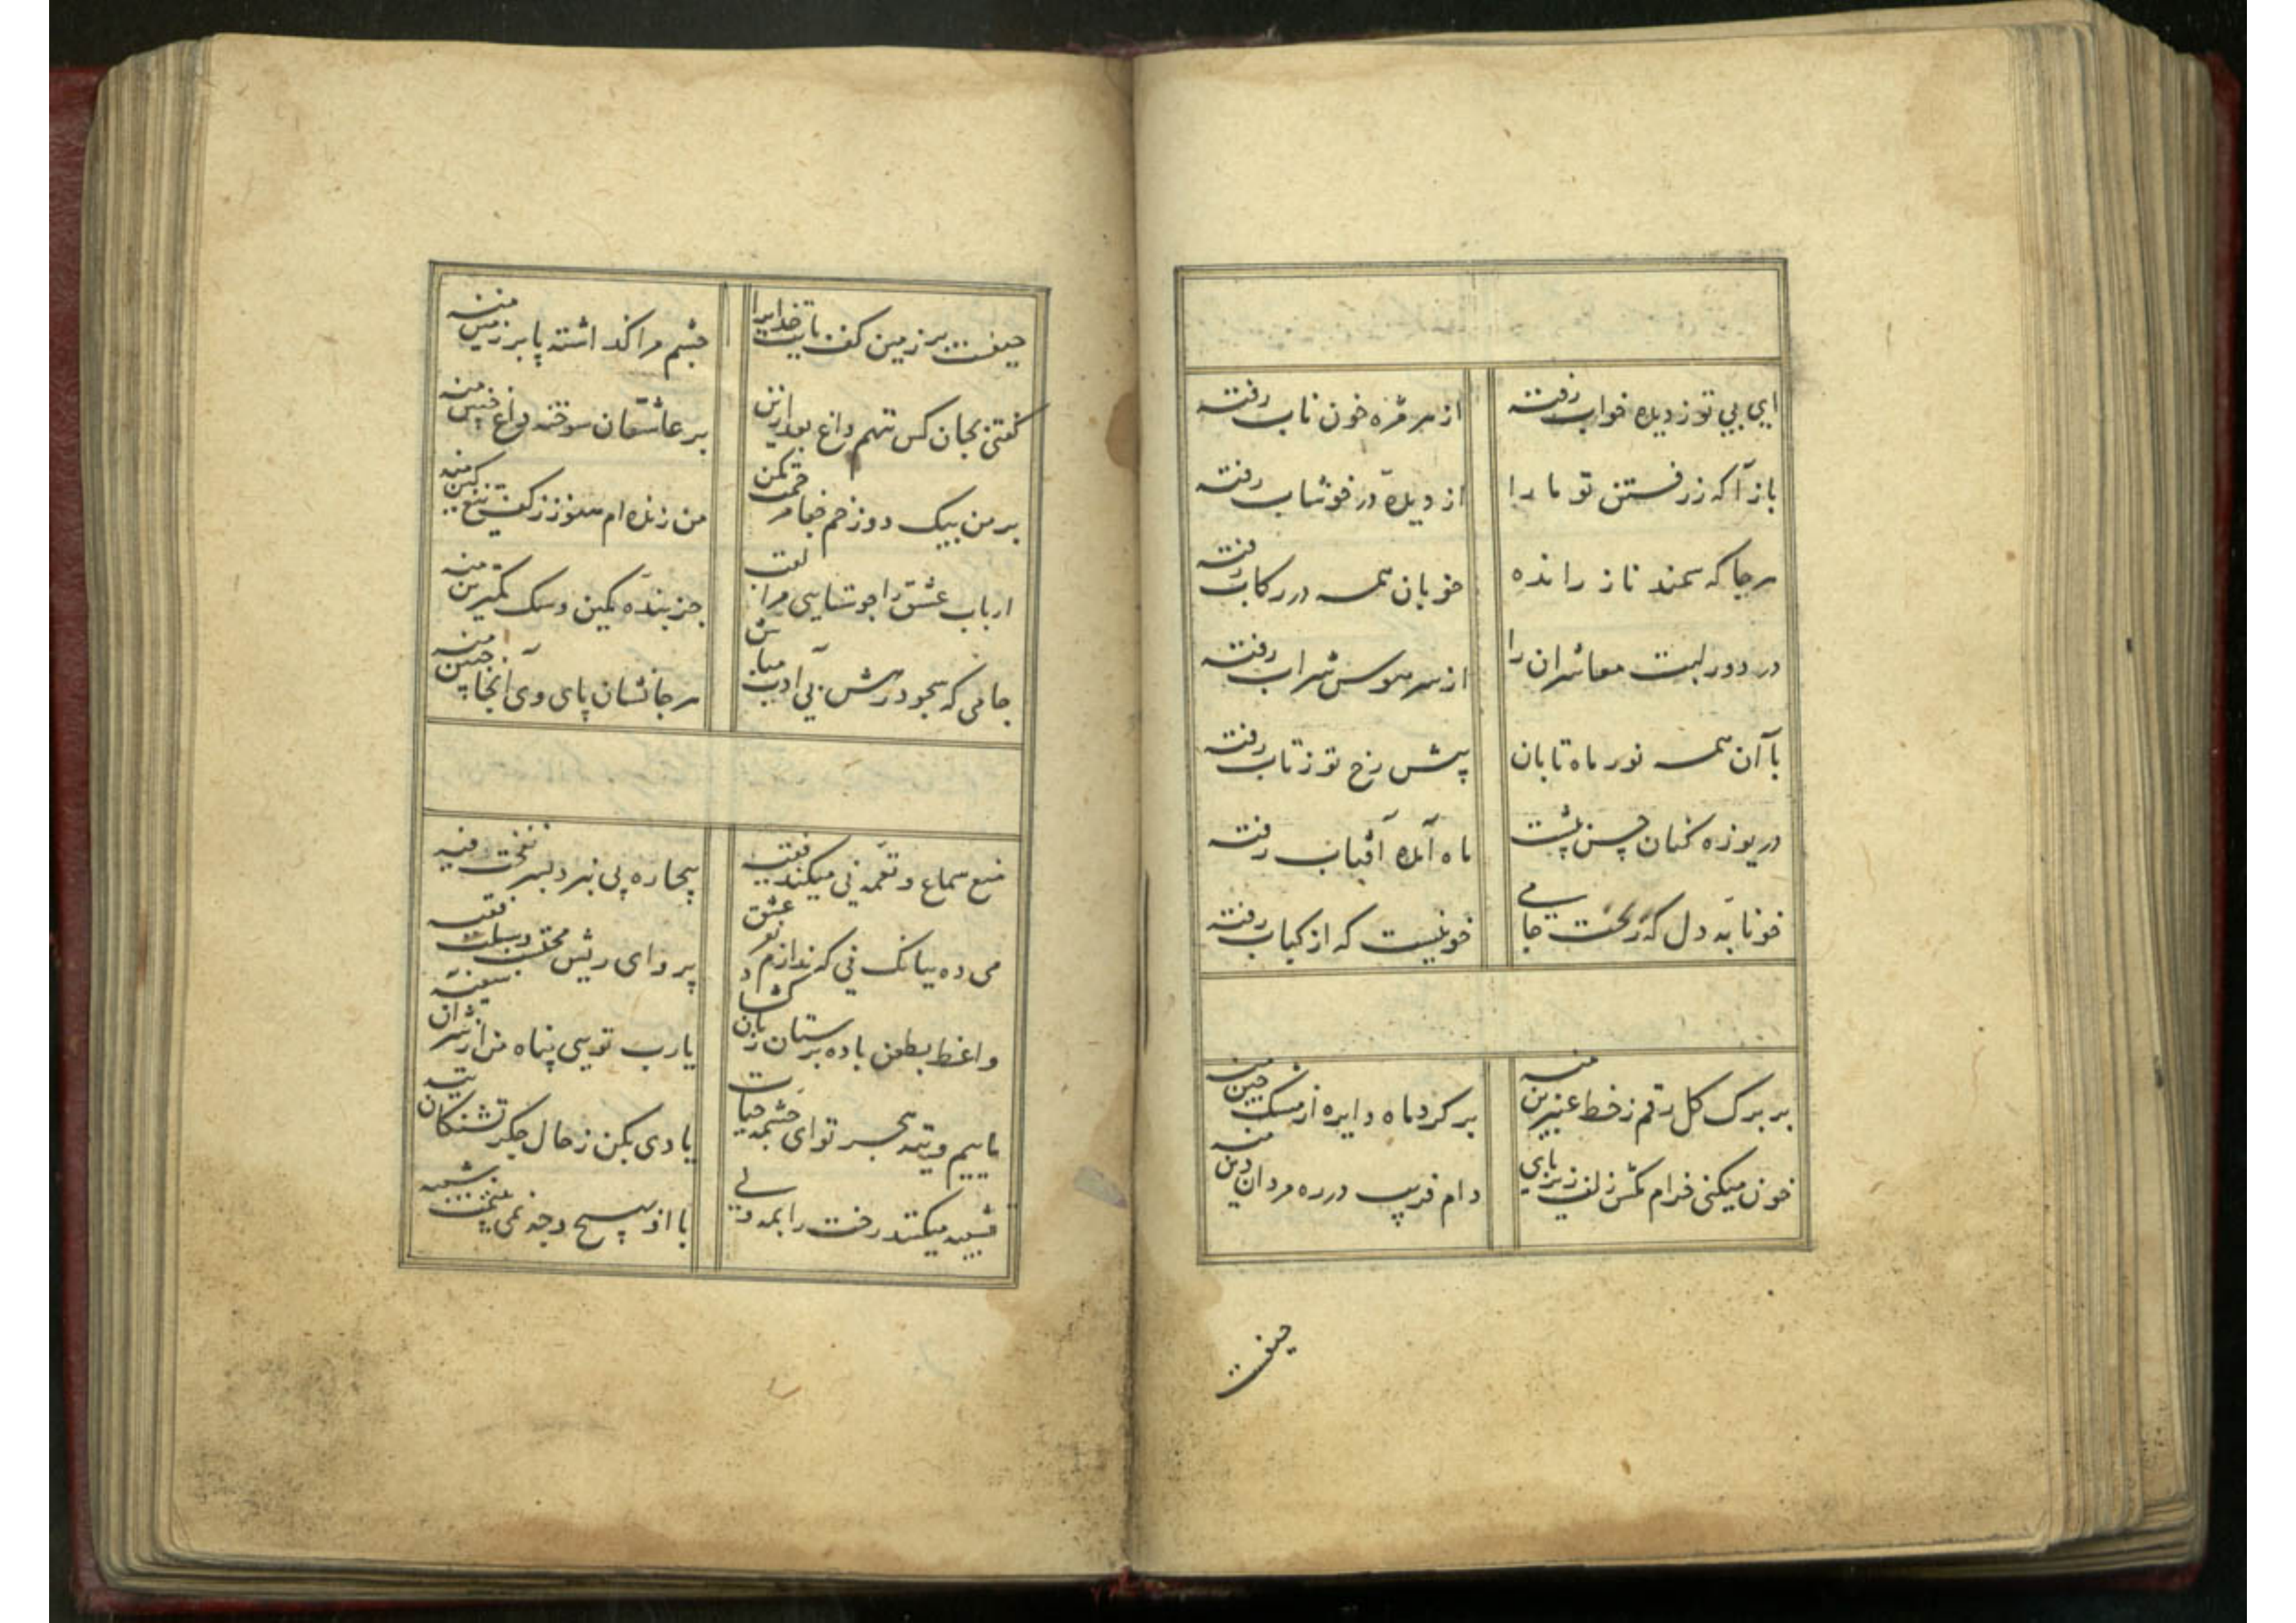 ای بی تو ز دیده خواب رفته
از هر مژه خون ناب رفته
باز آ که ز رفتن تو ما را
از دیده در خوشاب رفته
هر جا که سمند ناز رانده
خوبان همه در رکاب رفته
در دور لبت معاشران را
از سر هوس شراب رفته
با آن همه نور ماه تابان
پیش رخ تو ز تاب رفته
دریوزه کنان حسن پیشت
ماه آمده آفتاب رفته
خونابه دل که ریخت جامی
خونیست که از کباب رفته
بر برک کل رقم ز خط عنبرین منه
بر کرد ماه دایره از مشک چین منه
خون میکنی خرام مکش زلف زیر پای
دام فریب در ره مردان دین منه
حیفست
حیفست بر زمین کف پایت خدایرا
چشم مرا کذاشته پا بر زمین منه
کفتی بجان کس ننهم داغ بعد ازین
بر عاشقان سوخته داغ چنین منه
بر من بیک دو زخم جفا مرحمت مکن
من زنده ام هنوز ز کف تیغ کین منه
ارباب عشق را چو شناسی مرا لقب
جز بنده کمین و سک کمترین منه
جامی که سجود درش بی ادب مباش
هر جا نشان پای وی آنجا جبین منه
منع سماع و نغمه نی میکند فقیه
بیچاره پی نبرد بسر نفخت فیه
می ده ببانک نی که ندارم بدور عشق
پروای ریش محتسب و سبلت فقیه
واعظ بطعن باده پرستان زبان کشاد
یارب تویی پناه من از شر آن سفیه
ماییم و تیه هجر تو ای چشمه حیات
یادی بکن ز حال جکر تشنکان تیه
تشبیه میکنند رخت را بمه ولی
با او بهیچ وجه نمی بینمت شبیه